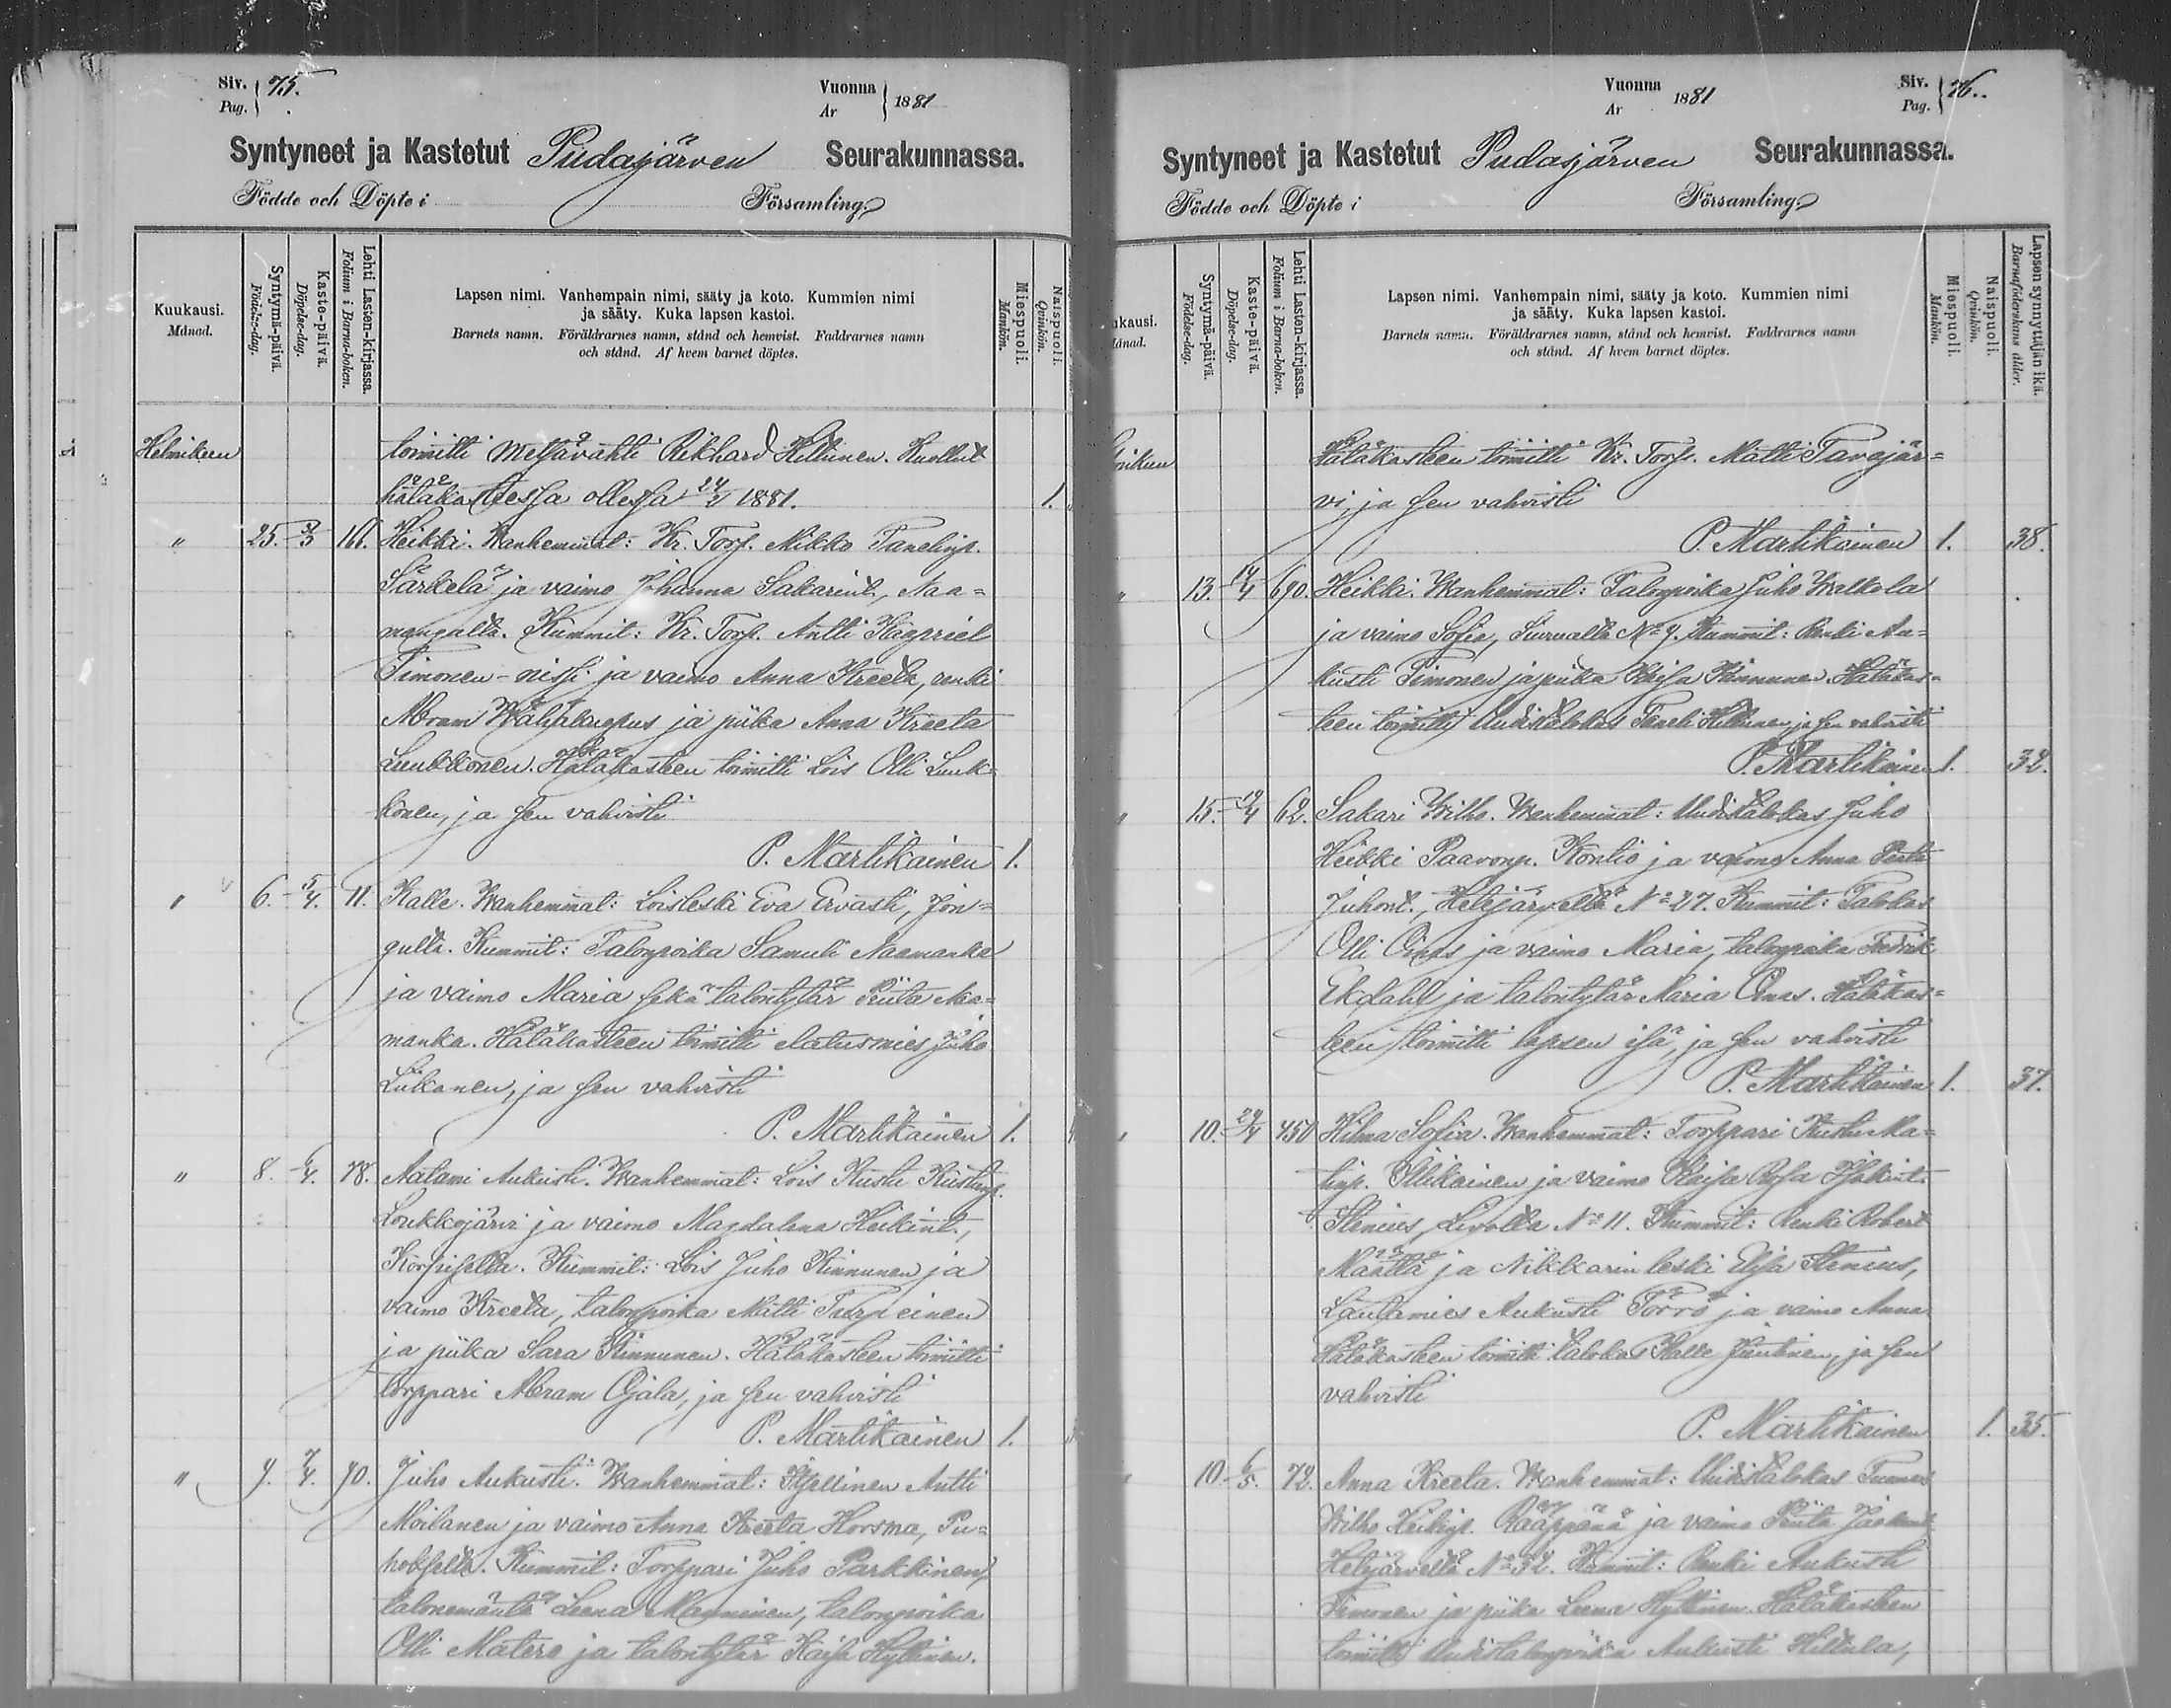 Siv. 75.
Pag.
Vuonna
Ar 1881
Syntyneet ja Kastetut Pudasjärven Seurakunnassa.
Födde och Döpte i Församling.
Kuukausi.
Månad.
Syntymä-päivä.
Födelse-dag.
Kaste-päivä.
Döpelse-dag.
Lehti Lasten-kirjassa.
Folium i Barna-boken.
Lapsen nimi. Vanhempain nimi, sääty ja koto. Kummien nimi
ja sääty. Kuka lapsen kastoi.
Barnets namn. Föräldrarnes namn, stånd och hemvist. Faddrarnes namn
och stånd. Af hvem barnet döptes.
Miespuoli.
Mankön.
Naispuoli.
Qvinkön.
Helmikuu toimitti Metsävahti Rikhard Hiltunen. Kuollut
hätäkasteessa ollessa 1881. 1.
" 25. 161. Heikki. Wanhemmat: Kr. Torp. Mikko Tanelinp.
Särkelä ja vaimo Johanna Sakarint., Naa=
mangalta. Kummit: Kr. Torp. Antti Kaapriel
Timonen-niss ja vaimo Anna Kreeta, renki
Abram ja piika Anna Kreeta
Luukkonen. Hätäkasteen toimitti Lois Olli Luuk=
konen, ja sen vahvisti
P. Martikainen 1.
" 6. 5/4. 11. Kalle. Wanhemmat: Loisleski Eva Ervasti, Jon=
gulta. Kummit: Talonpoika Samuli Naamanka
ja vaimo Maria sekä talontytär Priita Naa=
manka. Hätäkasteen toimitti elatusmies Juho
Liikanen, ja sen vahvisti
P. Martikainen 1.
" 8. 6/4. 78. Aatami Aukusti. Wanhemmat: Lois Kusti Kustinp.
Loukkojärvi ja vaimo Magdalena Heikint.,
Korpiselta. Kummit: Lois Juho Kinnunen ja
vaimo Kreeta, talonpoika Matti Turpeinen
ja piika Sara Kinnunen. Hätäkasteen toimitti
torppari Abram Ojala, ja sen vahvisti
P. Martikainen 1.
" 9. 7/4. 90. Juho Aukusti. Wanhemmat: Itsellinen Antti
Moilanen ja vaimo Anna Kreeta Horsma, Pu=
hokselta. Kummit: Torppari Juho Parkkinen,
talonemäntä Leena Manninen, talonpoika
Olli Matero ja talontytär Kaisa Hyttinen.
Vuonna
Ar 1881
Siv. 76.
Pag.
Syntyneet ja Kastetut Pudasjärven Seurakunnassa.
Födde och Döpte i Församling.
ukausi.
ånad.
Syntymä-päivä.
Födelse-dag.
Kaste-päivä.
Döpelse-dag.
Lehti Lasten-kirjassa.
Folium i Barna-boken.
Lapsen nimi. Vanhempain nimi, sääty ja koto. Kummien nimi
ja sääty. Kuka lapsen kastoi.
Barnets namn. Föräldrarnes namn, stånd och hemvist. Faddrarnes namn
och stånd. Af hvem barnet döptes.
Miespuoli.
Mankön.
Naispuoli.
Qvinkön.
Lapsen synnyttäjän ikä.
Barnaföderskans ålder.
Hätäkasteen toimitti Kr. Torp. Matti Tavajär=
vi, ja sen vahvisti
P. Martikainen 1. 38.
" 13. 14/4 690. Heikki. Wanhemmat: Talonpoika Juho Walkola
ja vaimo Sofia, Siurualta No 9. Kummit: Renki Au=
kusti Timonen ja piika Kaisa Kinnunen. Hätäkas=
teen toimitti Uudistalokas Taneli Hiltunen, ja sen vahvisti
P. Martikainen 1. 32.
" 15. 19/4 62. Sakari Wilho. Wanhemmat: Uudistalokas Juho
Heikki Paavonp. Kontio ja vaimo Anna Priita
Juhont., Hetejärveltä No 27. Kummit: Talokas
Olli Oinas ja vaimo Maria, talonpoika Fredrik
Ekdahl ja talontytär Maria Oinas. Hätäkas=
teen toimitti lapsen isä, ja sen vahvisti
P. Martikainen 1. 37.
" 10. 29/4 450 Hilma Sofia. Wanhemmat: Torppari Kusti Ma=
tinp. Ollikainen ja vaimo Kaisa Rosa Isakint.
Stenius, Livolta No 11. Kummit: Renki Robert
Määttä ja Nikkarin leski Elsa Stenius,
Lautamies Aukusti Törrö ja vaimo Anna
Hätäkasteen toimitti talokas Kalle Juntinen, ja sen
vahvisti
P. Martikainen 1. 35.
" 10. 6/5. 72. Anna Kreeta. Wanhemmat: Uudistalokas Tuomas
Wilho Heikinp. Rääppänä ja vaimo Priita
Hetejärveltä No 32. Kummit: Renki Aukusti
Timonen ja piika Leena Hyttinen. Hätäkasteen
toimitti Uudistalonpoika Aukusti Hiltula,